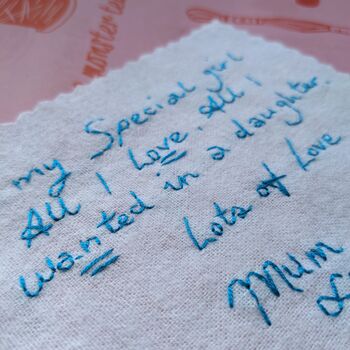 my Special girl
All I Love. All I
Wanted in a daughter
Lots of Love
Mum